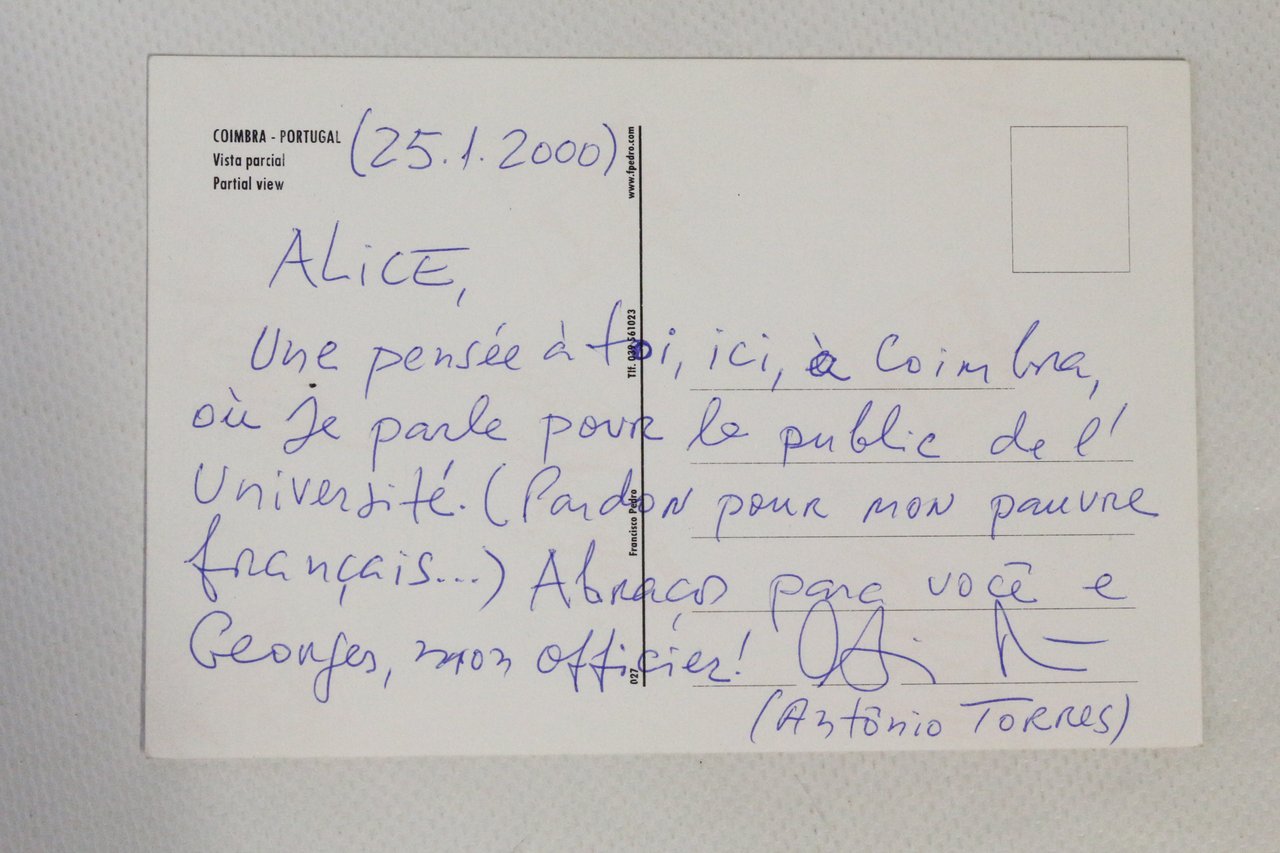 COIMBRA - PORTUGAL (25.1.2000)
Vista parcial
Partial view
www.fpedro.com
ALiCE,
Une pensée à toi, ici, à Coimbra,
où Je parle pour le public de l'
Université. (Pardon pour mon pauvre
français...) Abraços para você e
Georges, mon officier!
(Antônio TORRES)
Tlf. 039 561023
Francisco Pedro
027